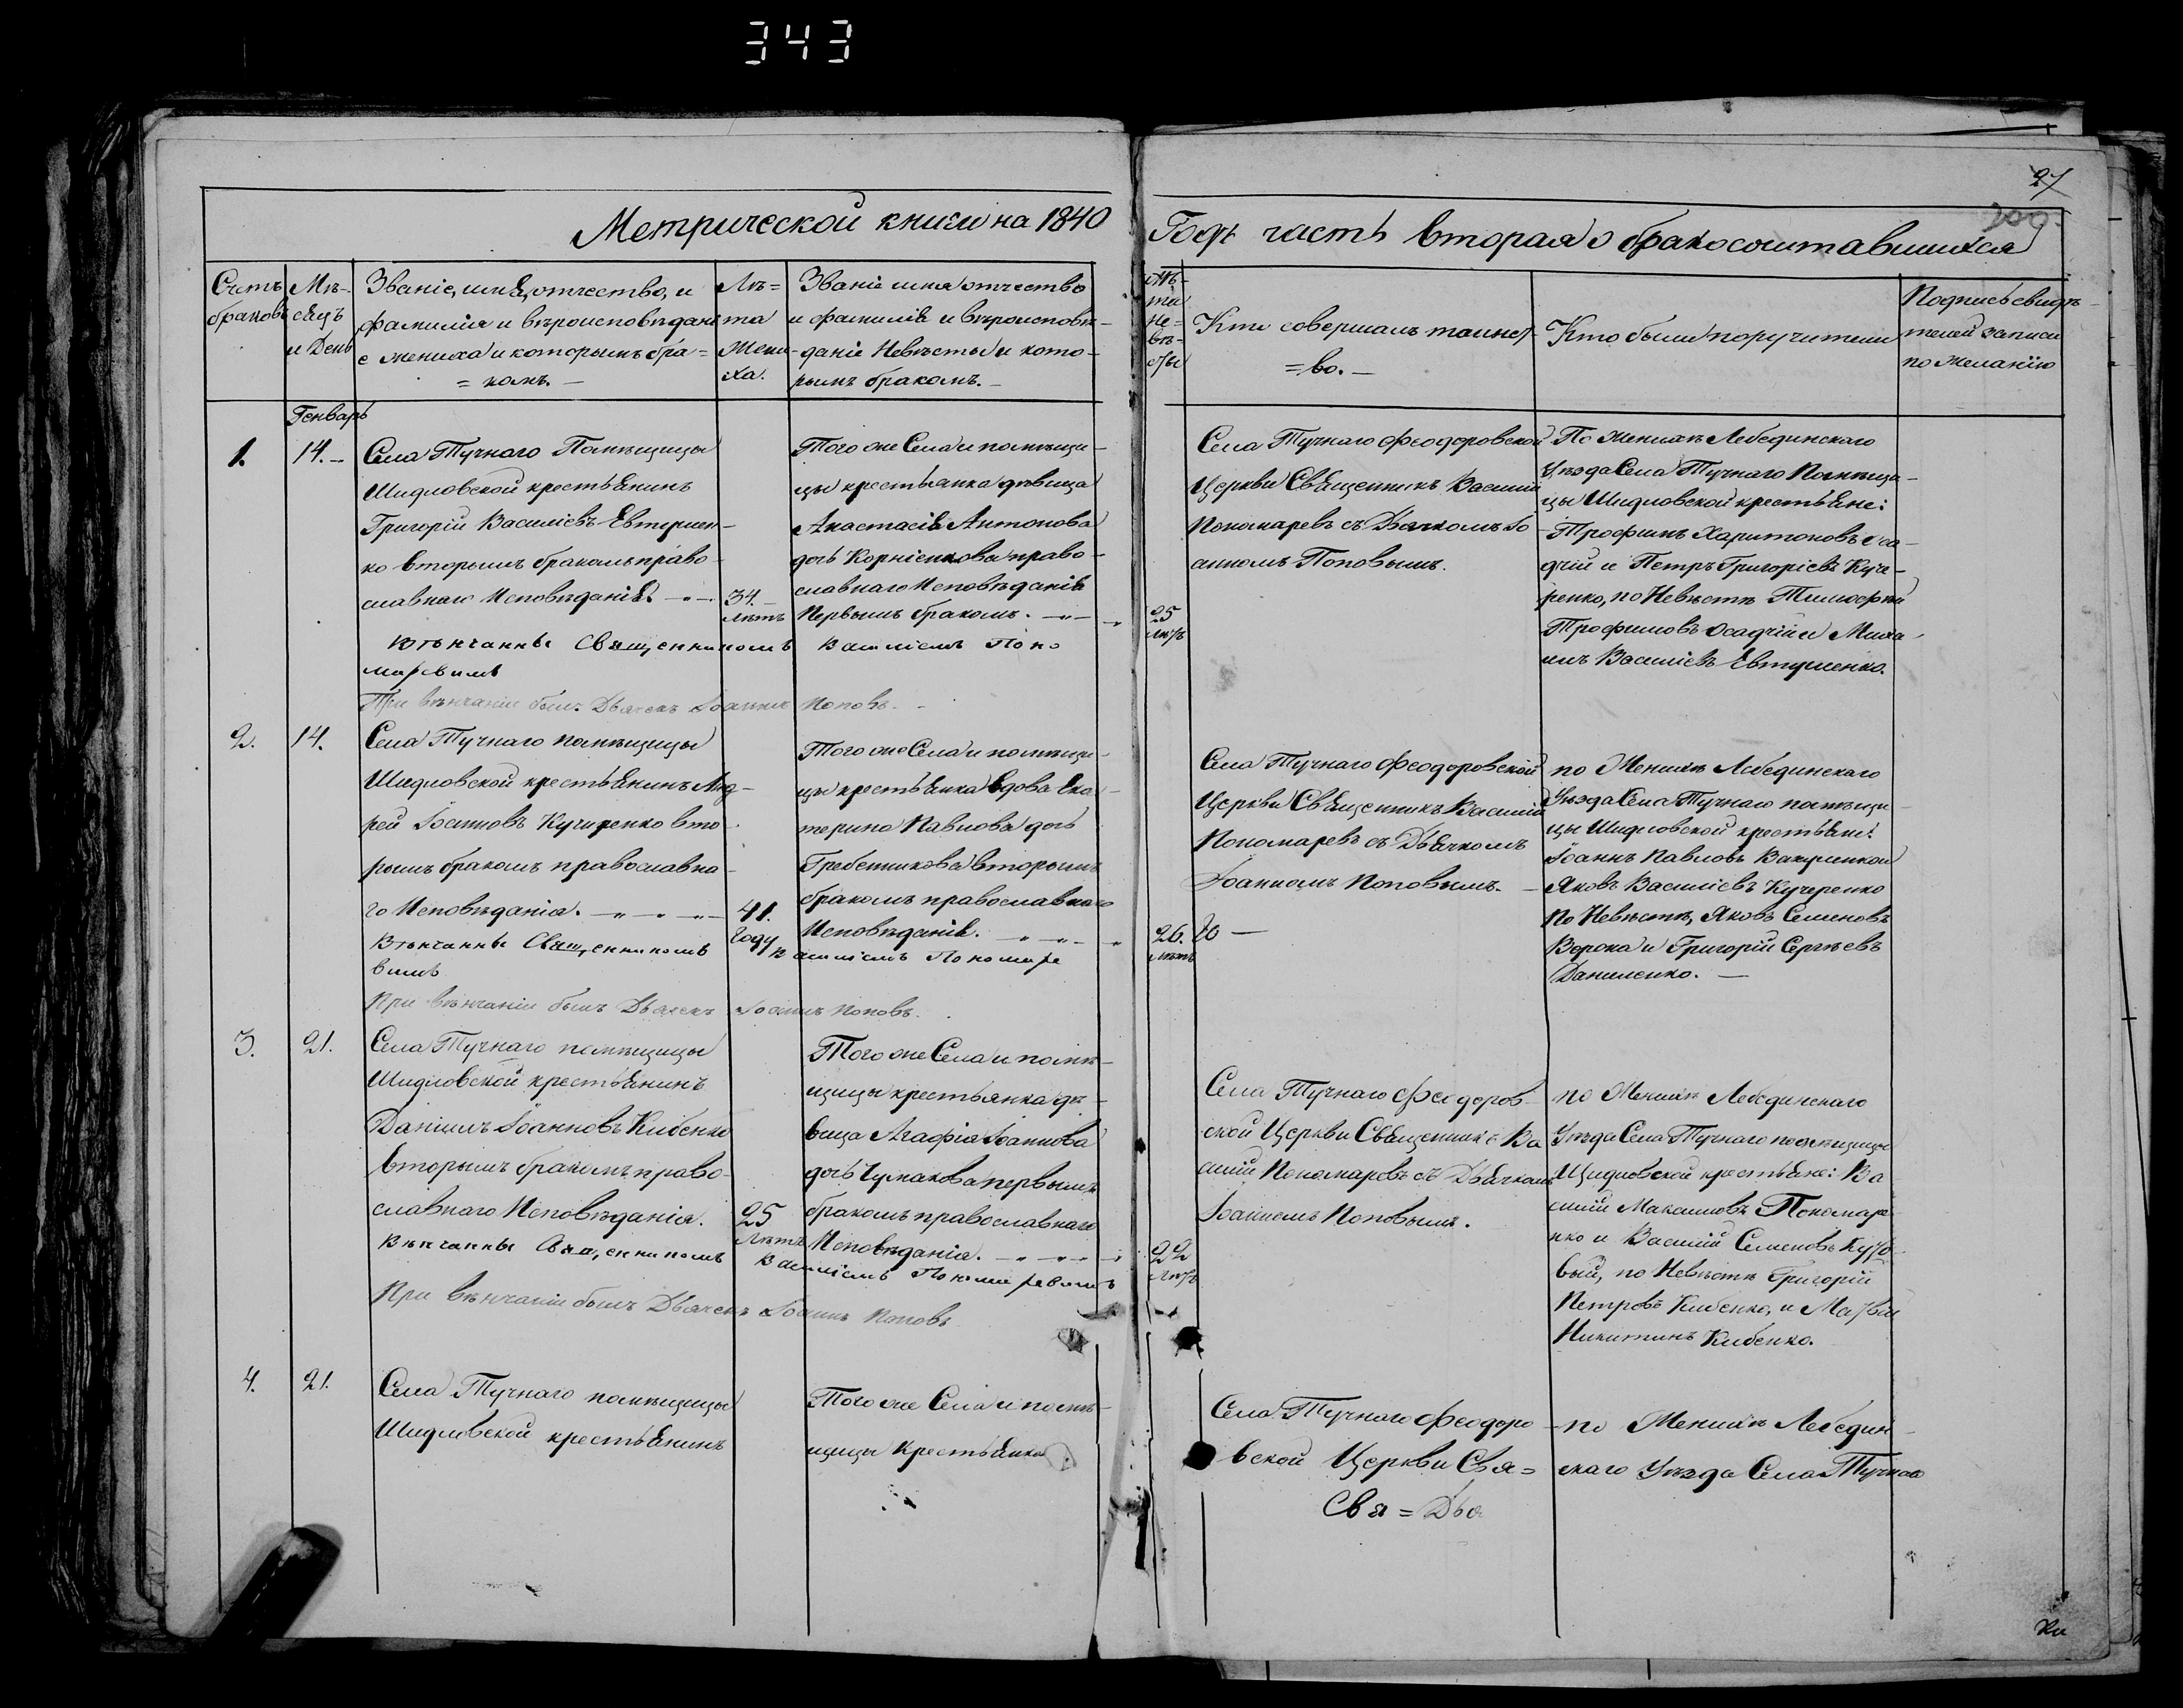 343
27
200
Метрической книги на 1840
Годъ часть вторая о бракосочитавшихся
Счетъ браковъ
Мѣ-
сяцъ
и День
Званіе, имя, отчество, и
фамилія и вѣроисповѣдані
е жениха и которымъ бра=
=комъ. —
Лѣ=
та
Жени-
ха.
Званіе имя отчество
и фамилія и вѣроисповѣ-
даніе Невѣсты и кото-
рымъ бракомъ. —
Лѣ-
та
не=
вѣ-
сты
Кто совершалъ таинст
=во. —
Кто были поручители
Подпись свидѣ-
телей записи
по желанію
Генварь
1.
14. —
Села Тучнаго Помѣщицы
Шидловской крестьянинъ
Григорій Василіевъ Евтушен-
ко вторымъ бракомъ право-
славнаго Исповѣданія.
34.
лѣтъ
Того же Села и помѣщи-
цы крестьянка дѣвица
Анастасія Антонова
дочь Корніенкова право-
славнаго Исповѣданія
Первымъ бракомъ.
25
лѣтъ
Села Тучнаго Феодоровской
Церкви Священникъ Василій
Пономаревъ съ Дьячкомъ Іо-
анномъ Поповымъ.
По женихѣ Лебединскаго
Уѣзда Села Тучнаго Помѣщи-
цы Шидловской крестьяне:
Трофимъ Харитоновъ Оса-
дчій и Петръ Григоріевъ Куче-
ренко, по Невѣстѣ Тимофѣй
Трофимовъ Осадчій и Миха-
илъ Василіевъ Евтушенко.
Вѣнчанны Священникомъ Василіемъ Поно
маревимъ
При вѣнчаніи былъ Дьячекъ Іоаннъ Поповъ.
2.
14.
Села Тучнаго помѣщицы
Шидловской крестьянинъ Анд-
рей Іоанновъ Кучеренко вто-
рымъ бракомъ православна-
го Исповѣданія.
41.
году
Того же Села и помѣщи-
цы крестьянка вдова Ека-
терина Павлова дочь
Гребенникова вторымъ
бракомъ православнаго
Исповѣданія.
26.
лѣтъ
Села Тучнаго Феодоровской
Церкви Священникъ Василій
Пономаревъ съ Дьячкомъ
Іоанномъ Поповымъ.
по Женихѣ Лебединскаго
Уѣзда Села Тучнаго помѣщи-
цы Шидловской крестьяне:
Іоаннъ Павловъ
Яковъ Василіевъ Кучеренко
По Невѣстѣ, Яковъ Семеновъ
Верока и Григорій Сергѣевъ
Даниленко. —
Вѣнчанны Священникомъ Василіемъ Пономаре
вимъ
При вѣнчаніи былъ Дьячекъ Іоаннъ Поповъ.
3.
21.
Села Тучнаго помѣщицы
Шидловской крестьянинъ
Даніилъ Іоанновъ Кибенко
вторымъ бракомъ право-
славнаго Исповѣданія.
25
лѣтъ
Того же Села и помѣ-
щицы крестьянка дѣ-
вица Агафія Іоаннова
дочь Чумакова первымъ
бракомъ православнаго
Исповѣданія.
22
лѣтъ
Села Тучнаго Феодоров-
ской Церкви Священникъ Ва
силій Пономаревъ съ Дьячкомъ
Іоанномъ Поповымъ.
по Женихѣ Лебединскаго
Уѣзда Села Тучнаго помѣщицы
Шидловской крестьяне: Ва
силій Максимовъ Пономар
нко и Василій Семеновъ
вый, по Невѣстѣ Григорій
Петровъ Кибенко, и Матвѣй
Никитинъ Кибенко.
Вѣнчанны Священникомъ Василіемъ Пономаревимъ
При вѣнчаніи былъ Дьячекъ Іоаннъ Поповъ
4.
21.
Села Тучнаго помѣщицы
Шидловской крестьянинъ
Того же Села и помѣ-
щицы Крестьянка
Села Тучнаго Феодоро
вской Церкви Свя=
Свя = Дья
по Женихѣ Лебедин-
скаго Уѣзда Села Тучнаго